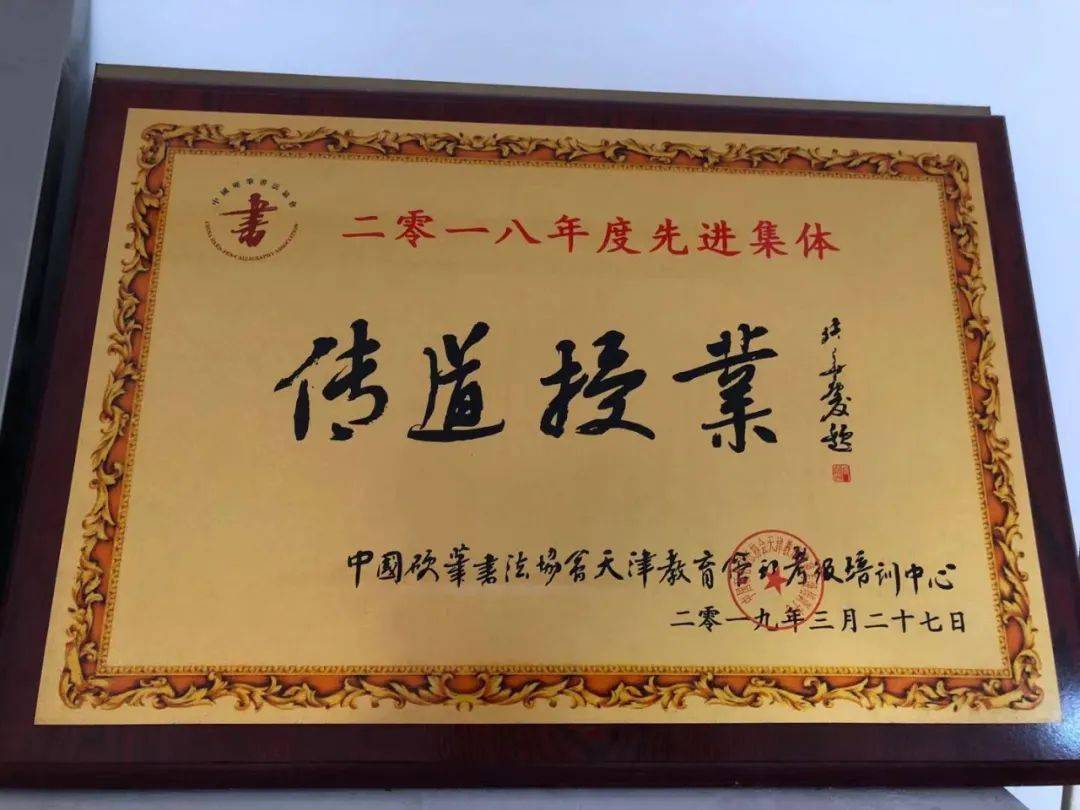 中國硬筆書法協會
書
CHINA HARD-PEN CALLIGRAPHY ASSOCIATION
二零一八年度先进集体
传道授業
张华庆题
中國硬筆書法協會天津教育管理考级培训中心
二零一九年三月二十七日